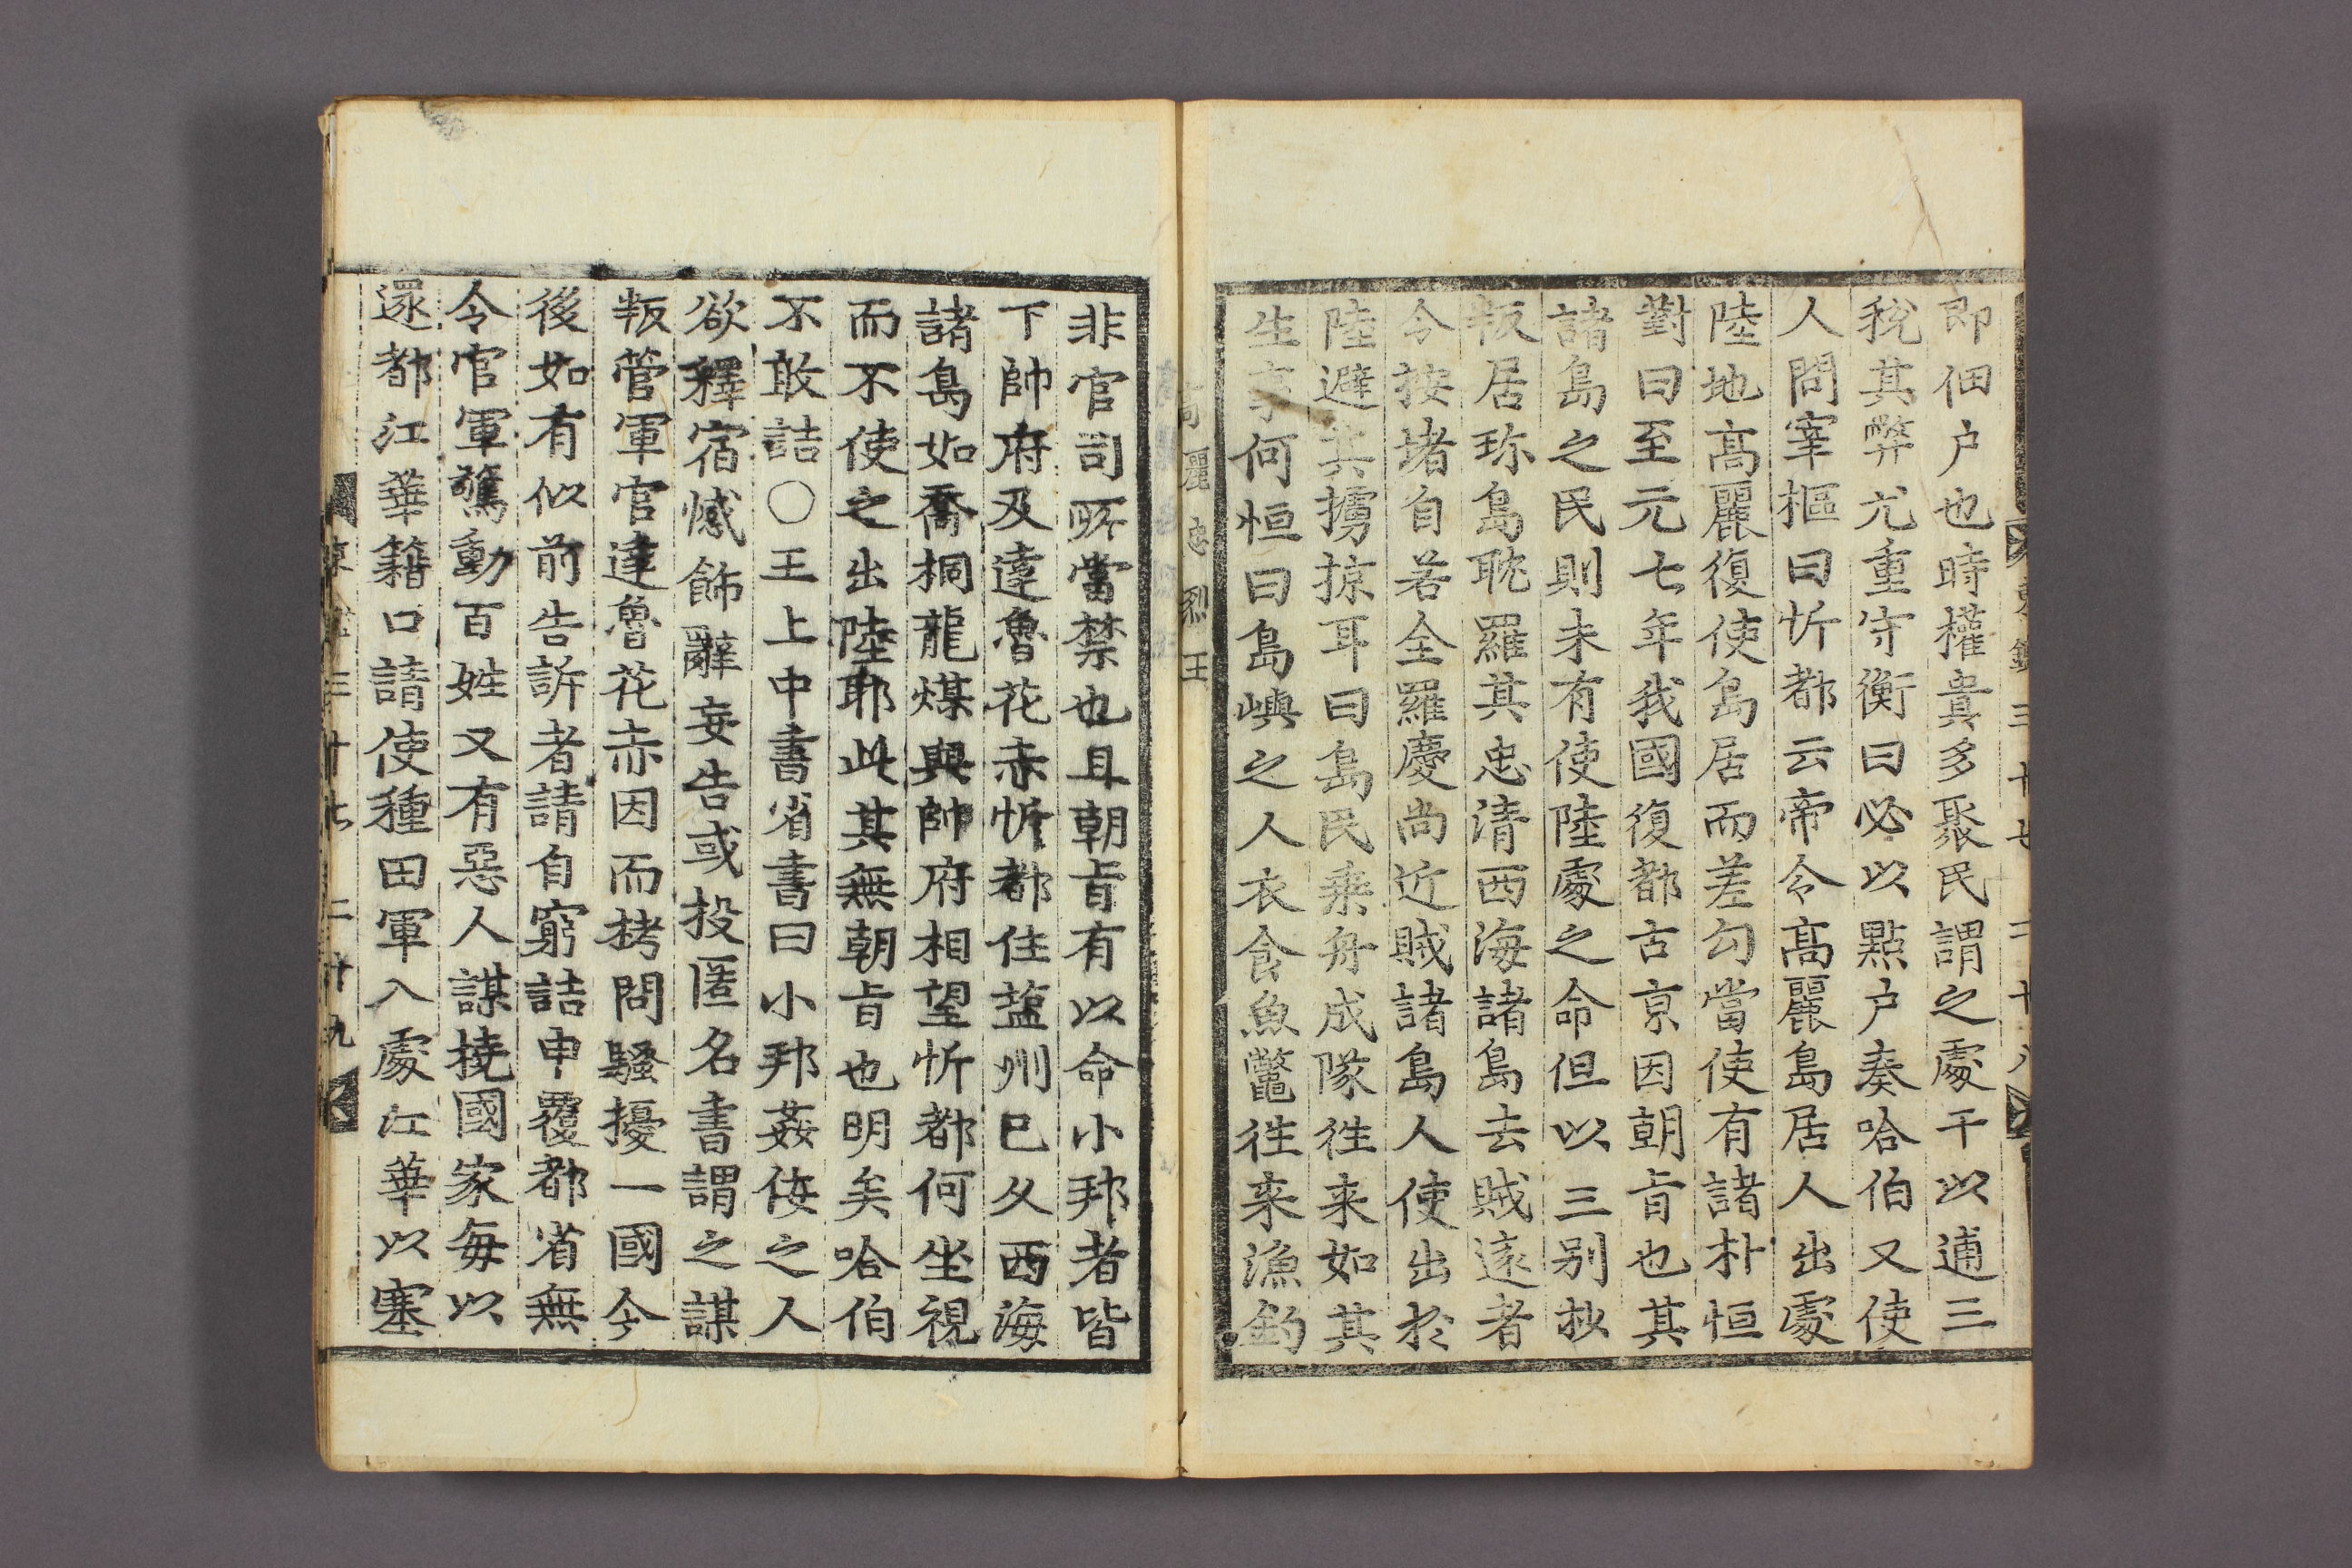 即佃户也時權貴多聚民謂之處干以逋三
稅其弊尤重守衡曰必以點户奏哈伯又使
人問宰樞曰忻都云帝令高麗島居人出處
陸地高麗復使島居而差勾當使有諸朴恒
對曰至元七年我國復都古京因朝旨也其
諸島之民則未有使陸處之命但以三別抄
叛居珎島耽羅其忠清西海諸島去賊遠者
令按堵自若全羅慶尚近賊諸島人使出於
陸避其擄掠耳曰島民乗舟成隊徃来如其
生享何恒曰島嶼之人衣食魚鼈徃来漁釣
高麗忠烈王
非官司㪽當禁也且朝旨有以命小邦者皆
下帥府及達魯花赤忻都住塩州已久西海
諸島如喬桐龍媒與帥府相望忻都何坐視
而不使之出陸耶此其無朝旨也明矣哈伯
不敢詰○王上中書省書曰小邦姦侫之人
欲釋宿憾飾辭妄告或投匿名書謂之謀
叛管軍官達魯花赤因而栲問騷擾一國今
後如有似前告訴者請自窮詰申覆都省無
令官軍驚動百姓又有惡人謀撓國家每以
還都江華籍口請使種田軍入處江華以塞
三十七 二十九